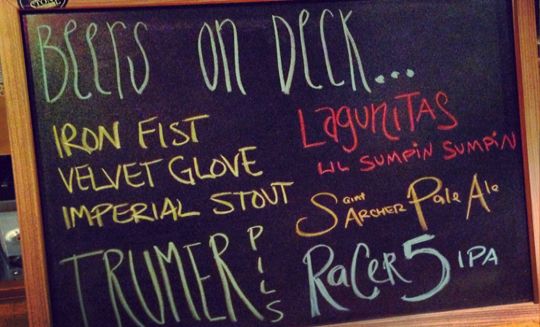 BEERS ON DECK...
IRON FIST
VELVET GLOVE
IMPERIAL STOUT
TRUMER PILS
LAGUNITAS
LIL SUMPIN SUMPIN
Saint ARCHER Pale Ale
RaCer 5 IPA